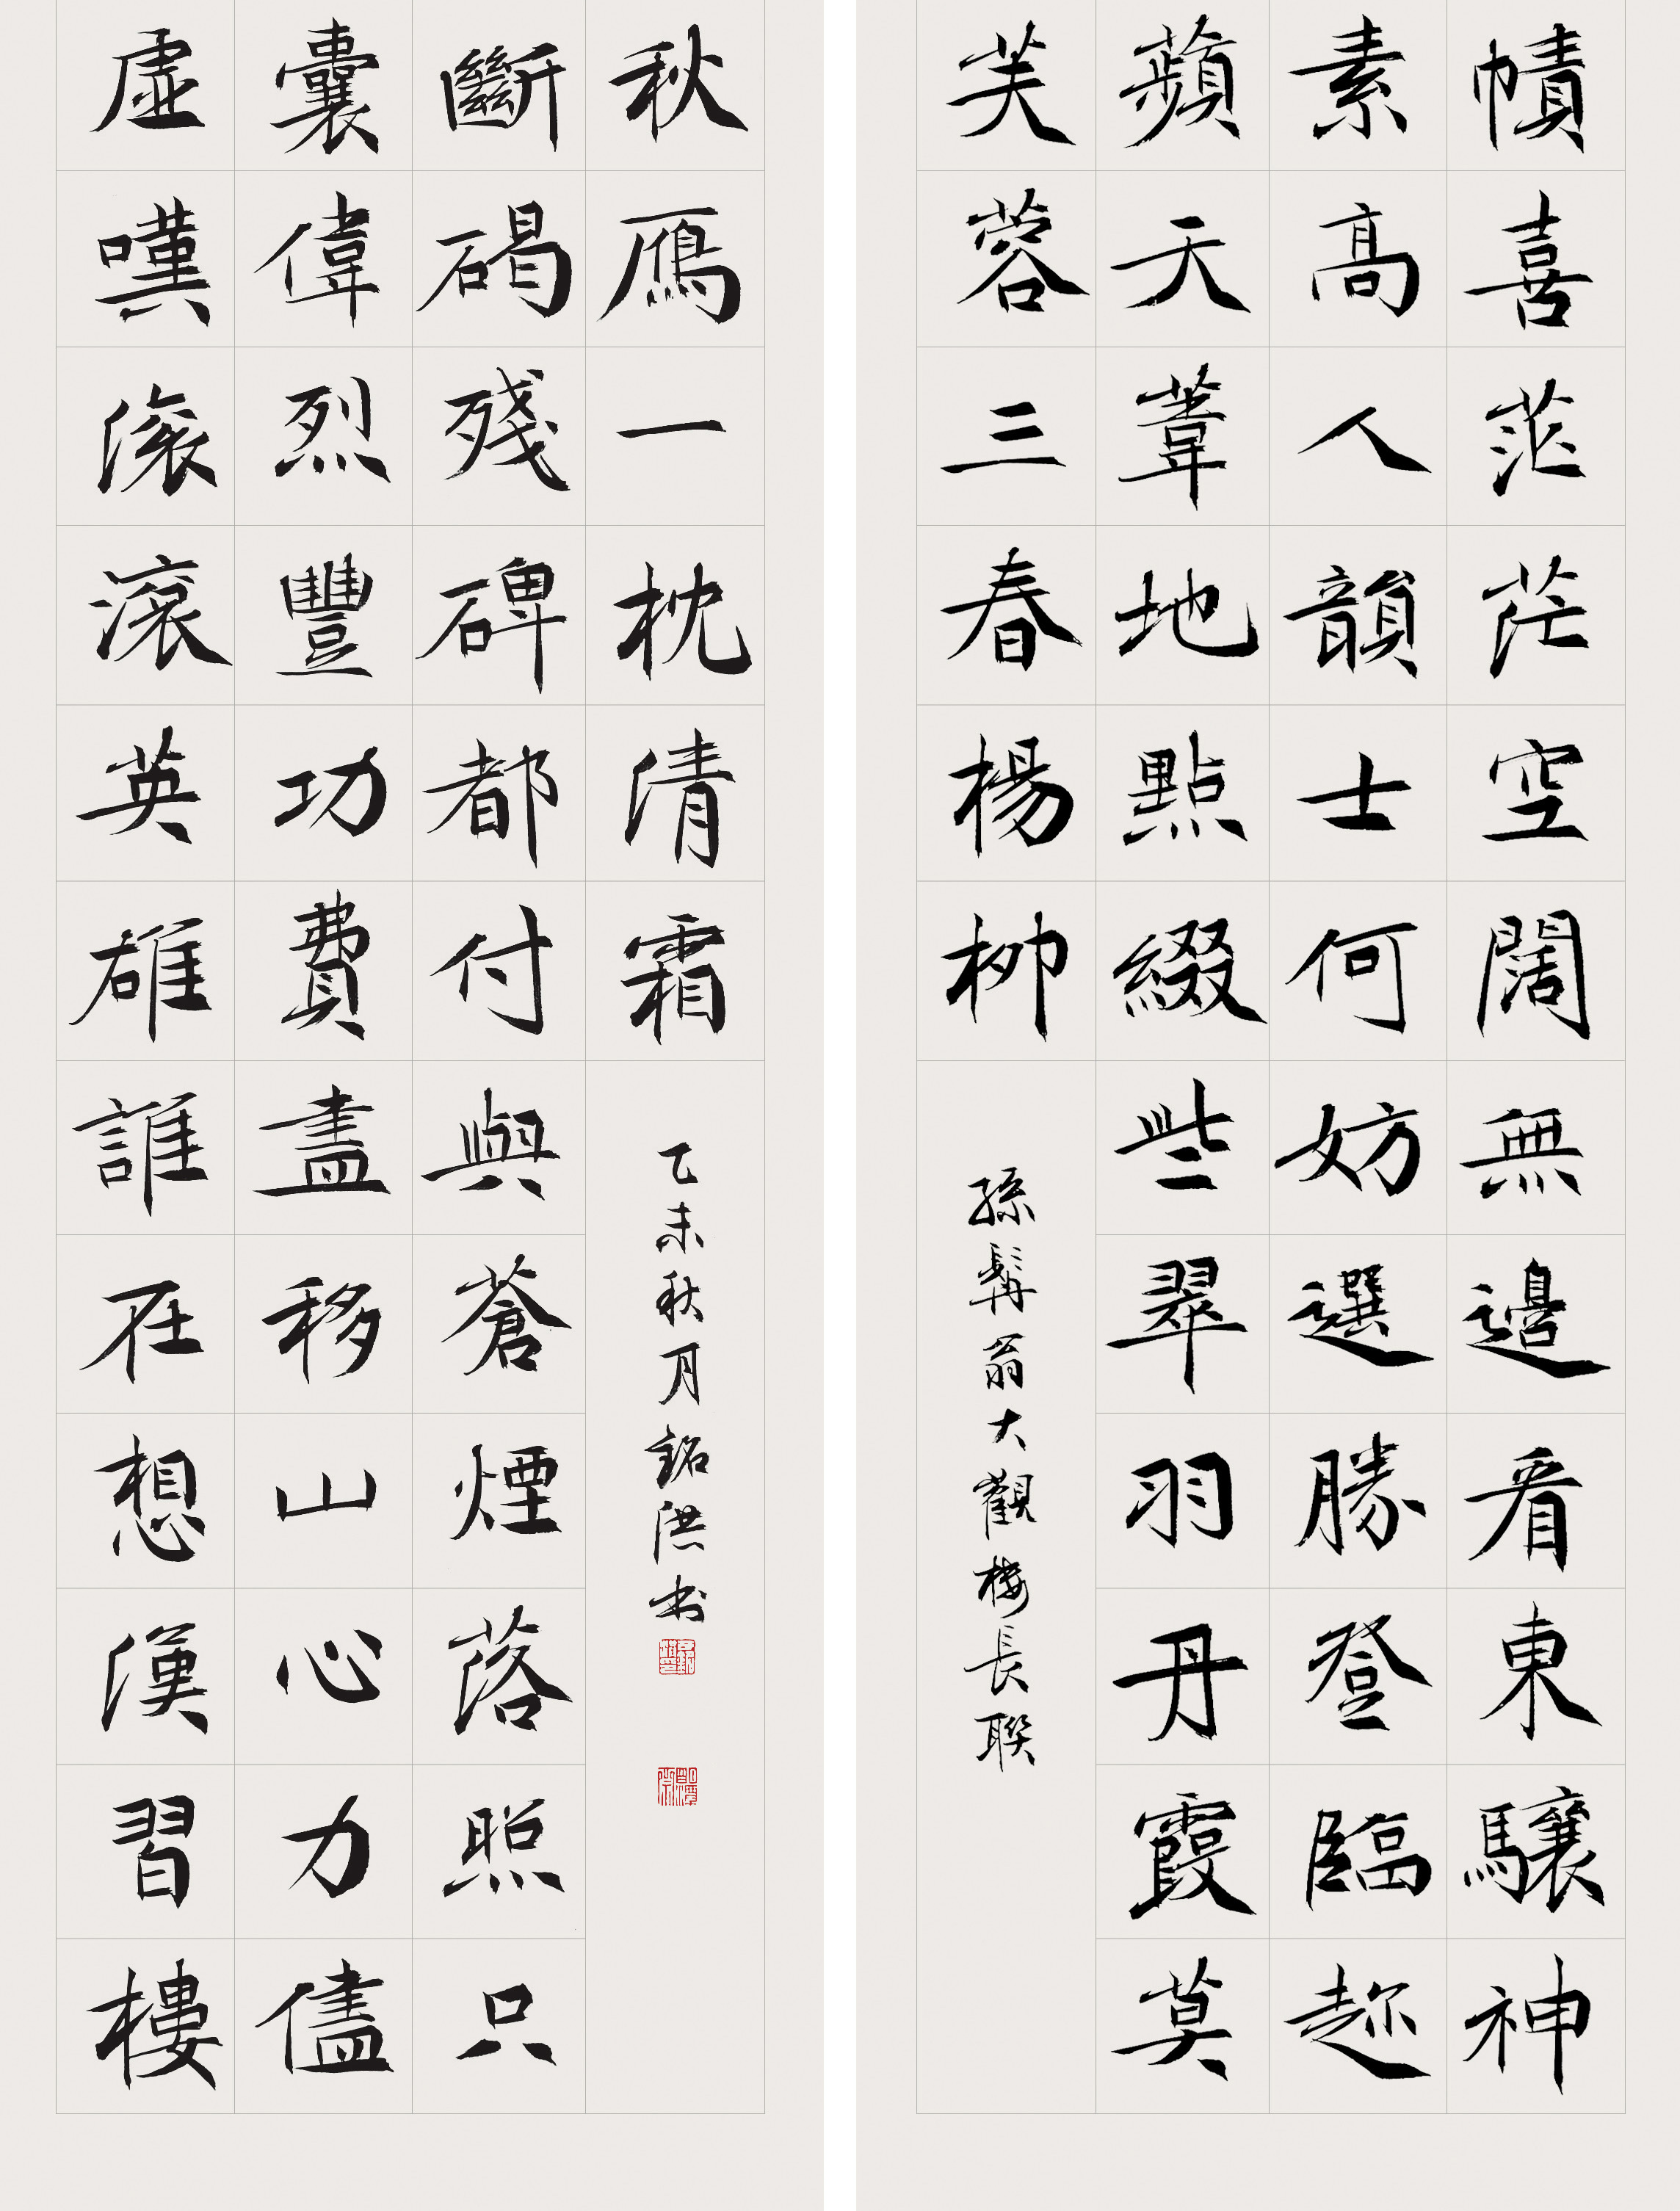 幘喜茫茫空闊無邊看東驤神
素高人韻士何妨選勝登臨趂
蘋天葦地點綴些翠羽丹霞莫
芙蓉三春楊柳
孫髯翁大觀樓長聯
虛嘆滾滾英雄誰在想漢習樓
囊偉烈豐功費盡移山心力儘
斷碣殘碑都付與蒼煙落照只
秋鴈一枕清霜
乙未秋月銘洪书